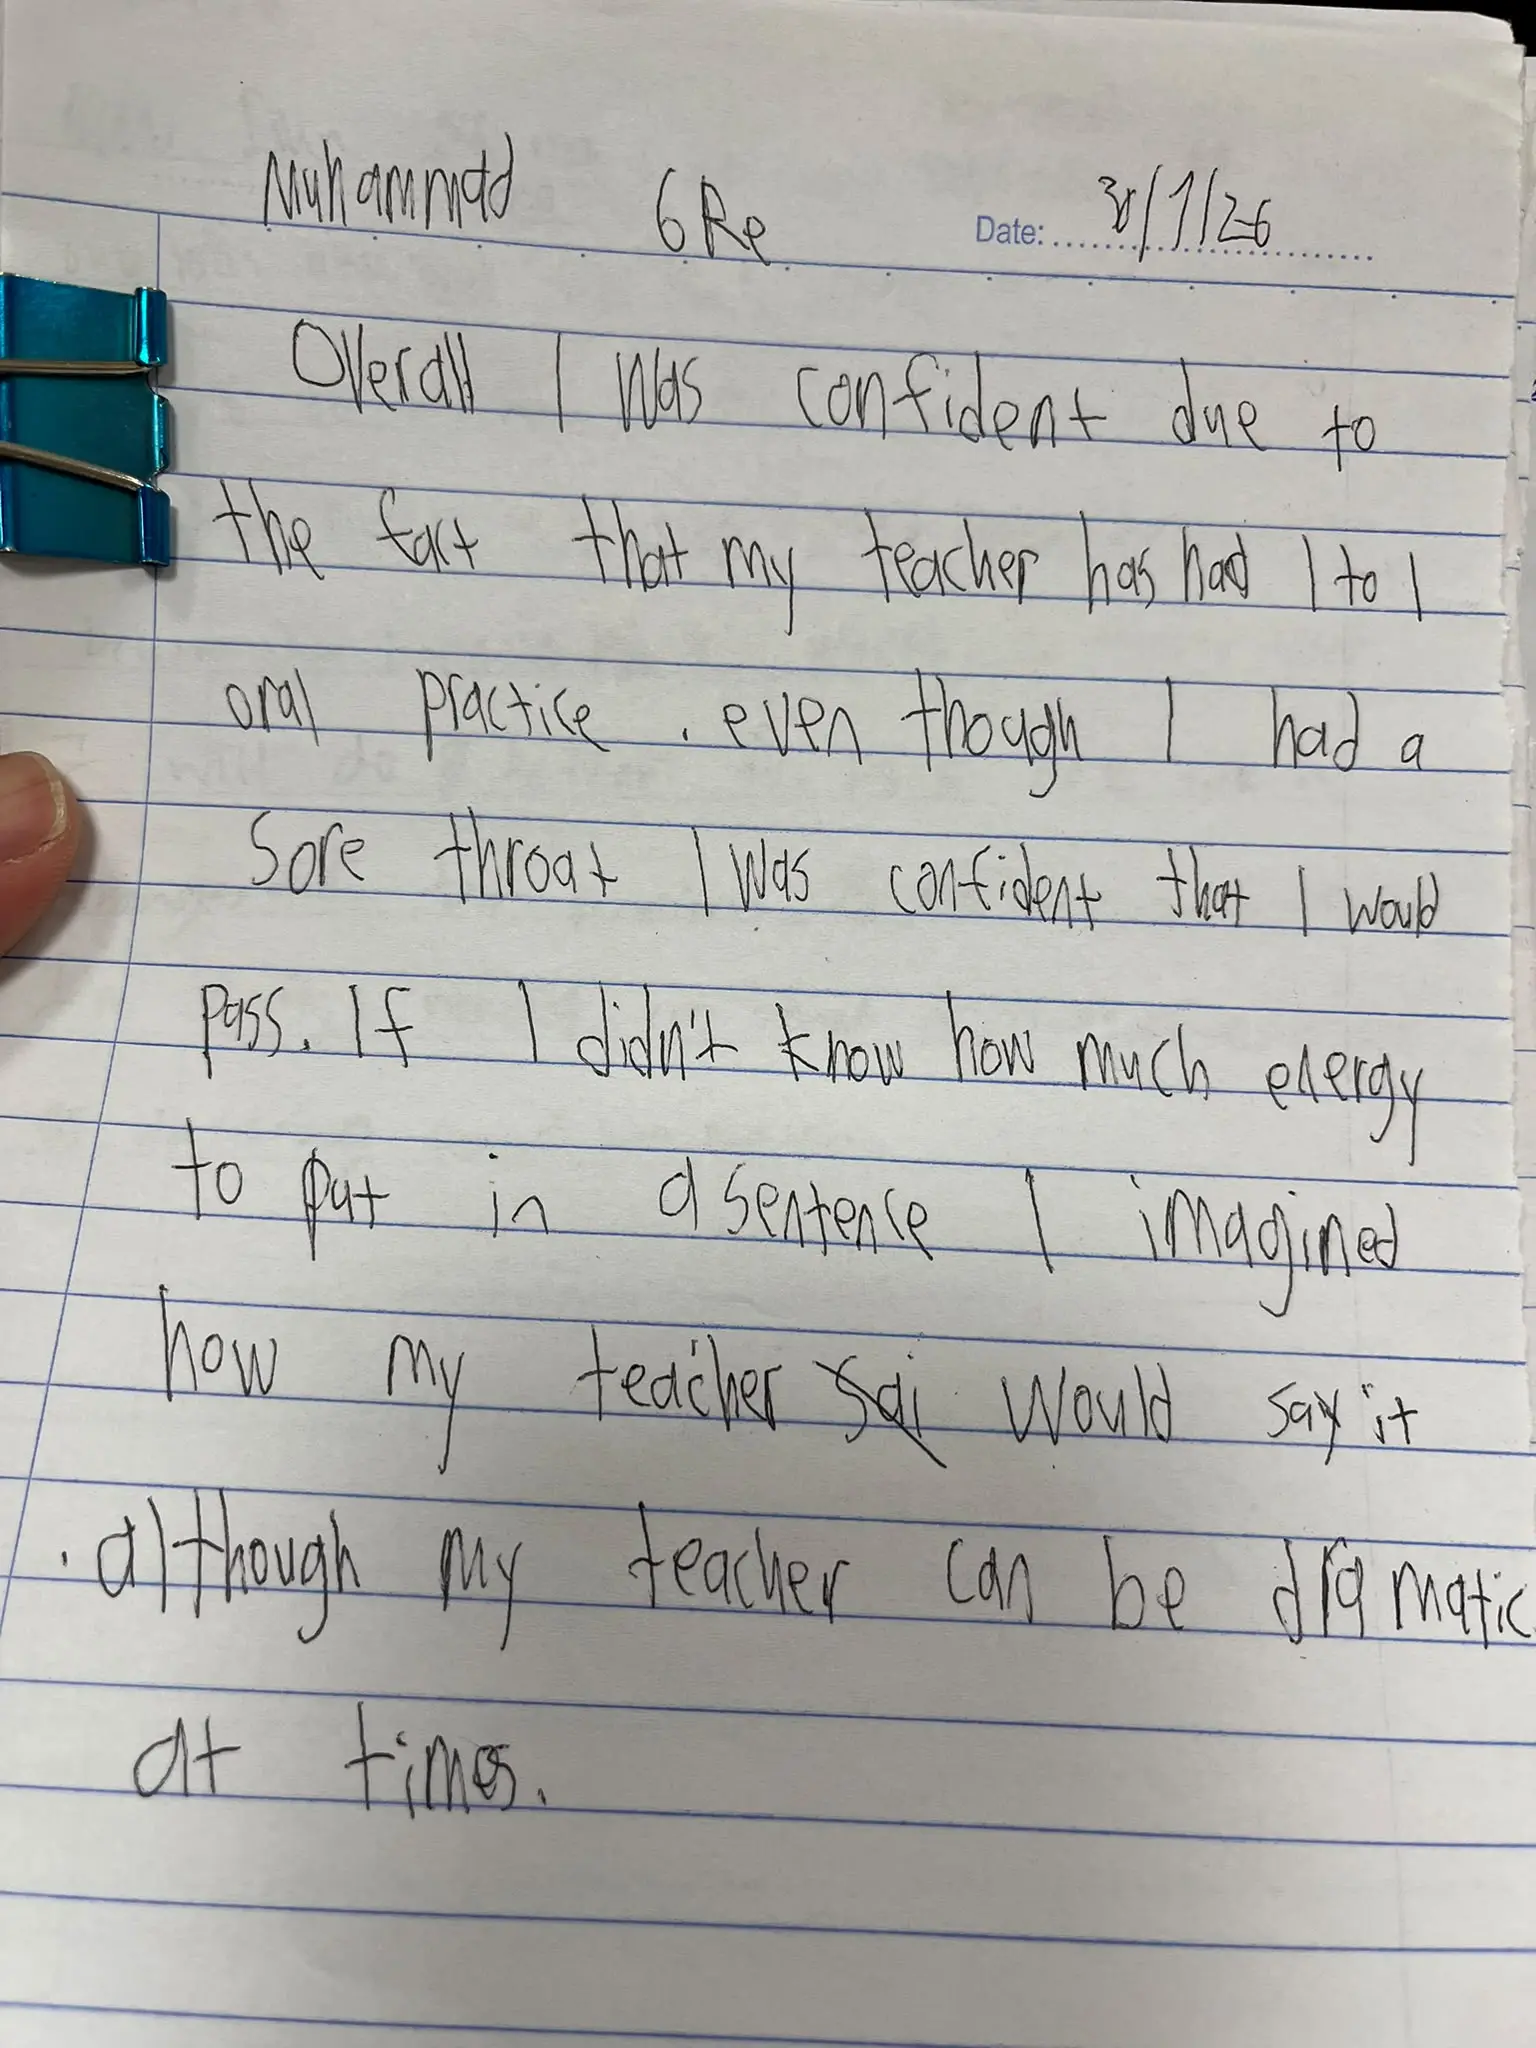 Muhammad 6Re Date: 30/1/26
Overall I was confident due to
the fact that my teacher has had 1 to 1
oral practice . even though I had a
Sore throat I was confident that I would
pass. If I didn't know how much energy
to put in a sentence I imagined
how my teacher would say it
. although my teacher can be dramatic
at times.